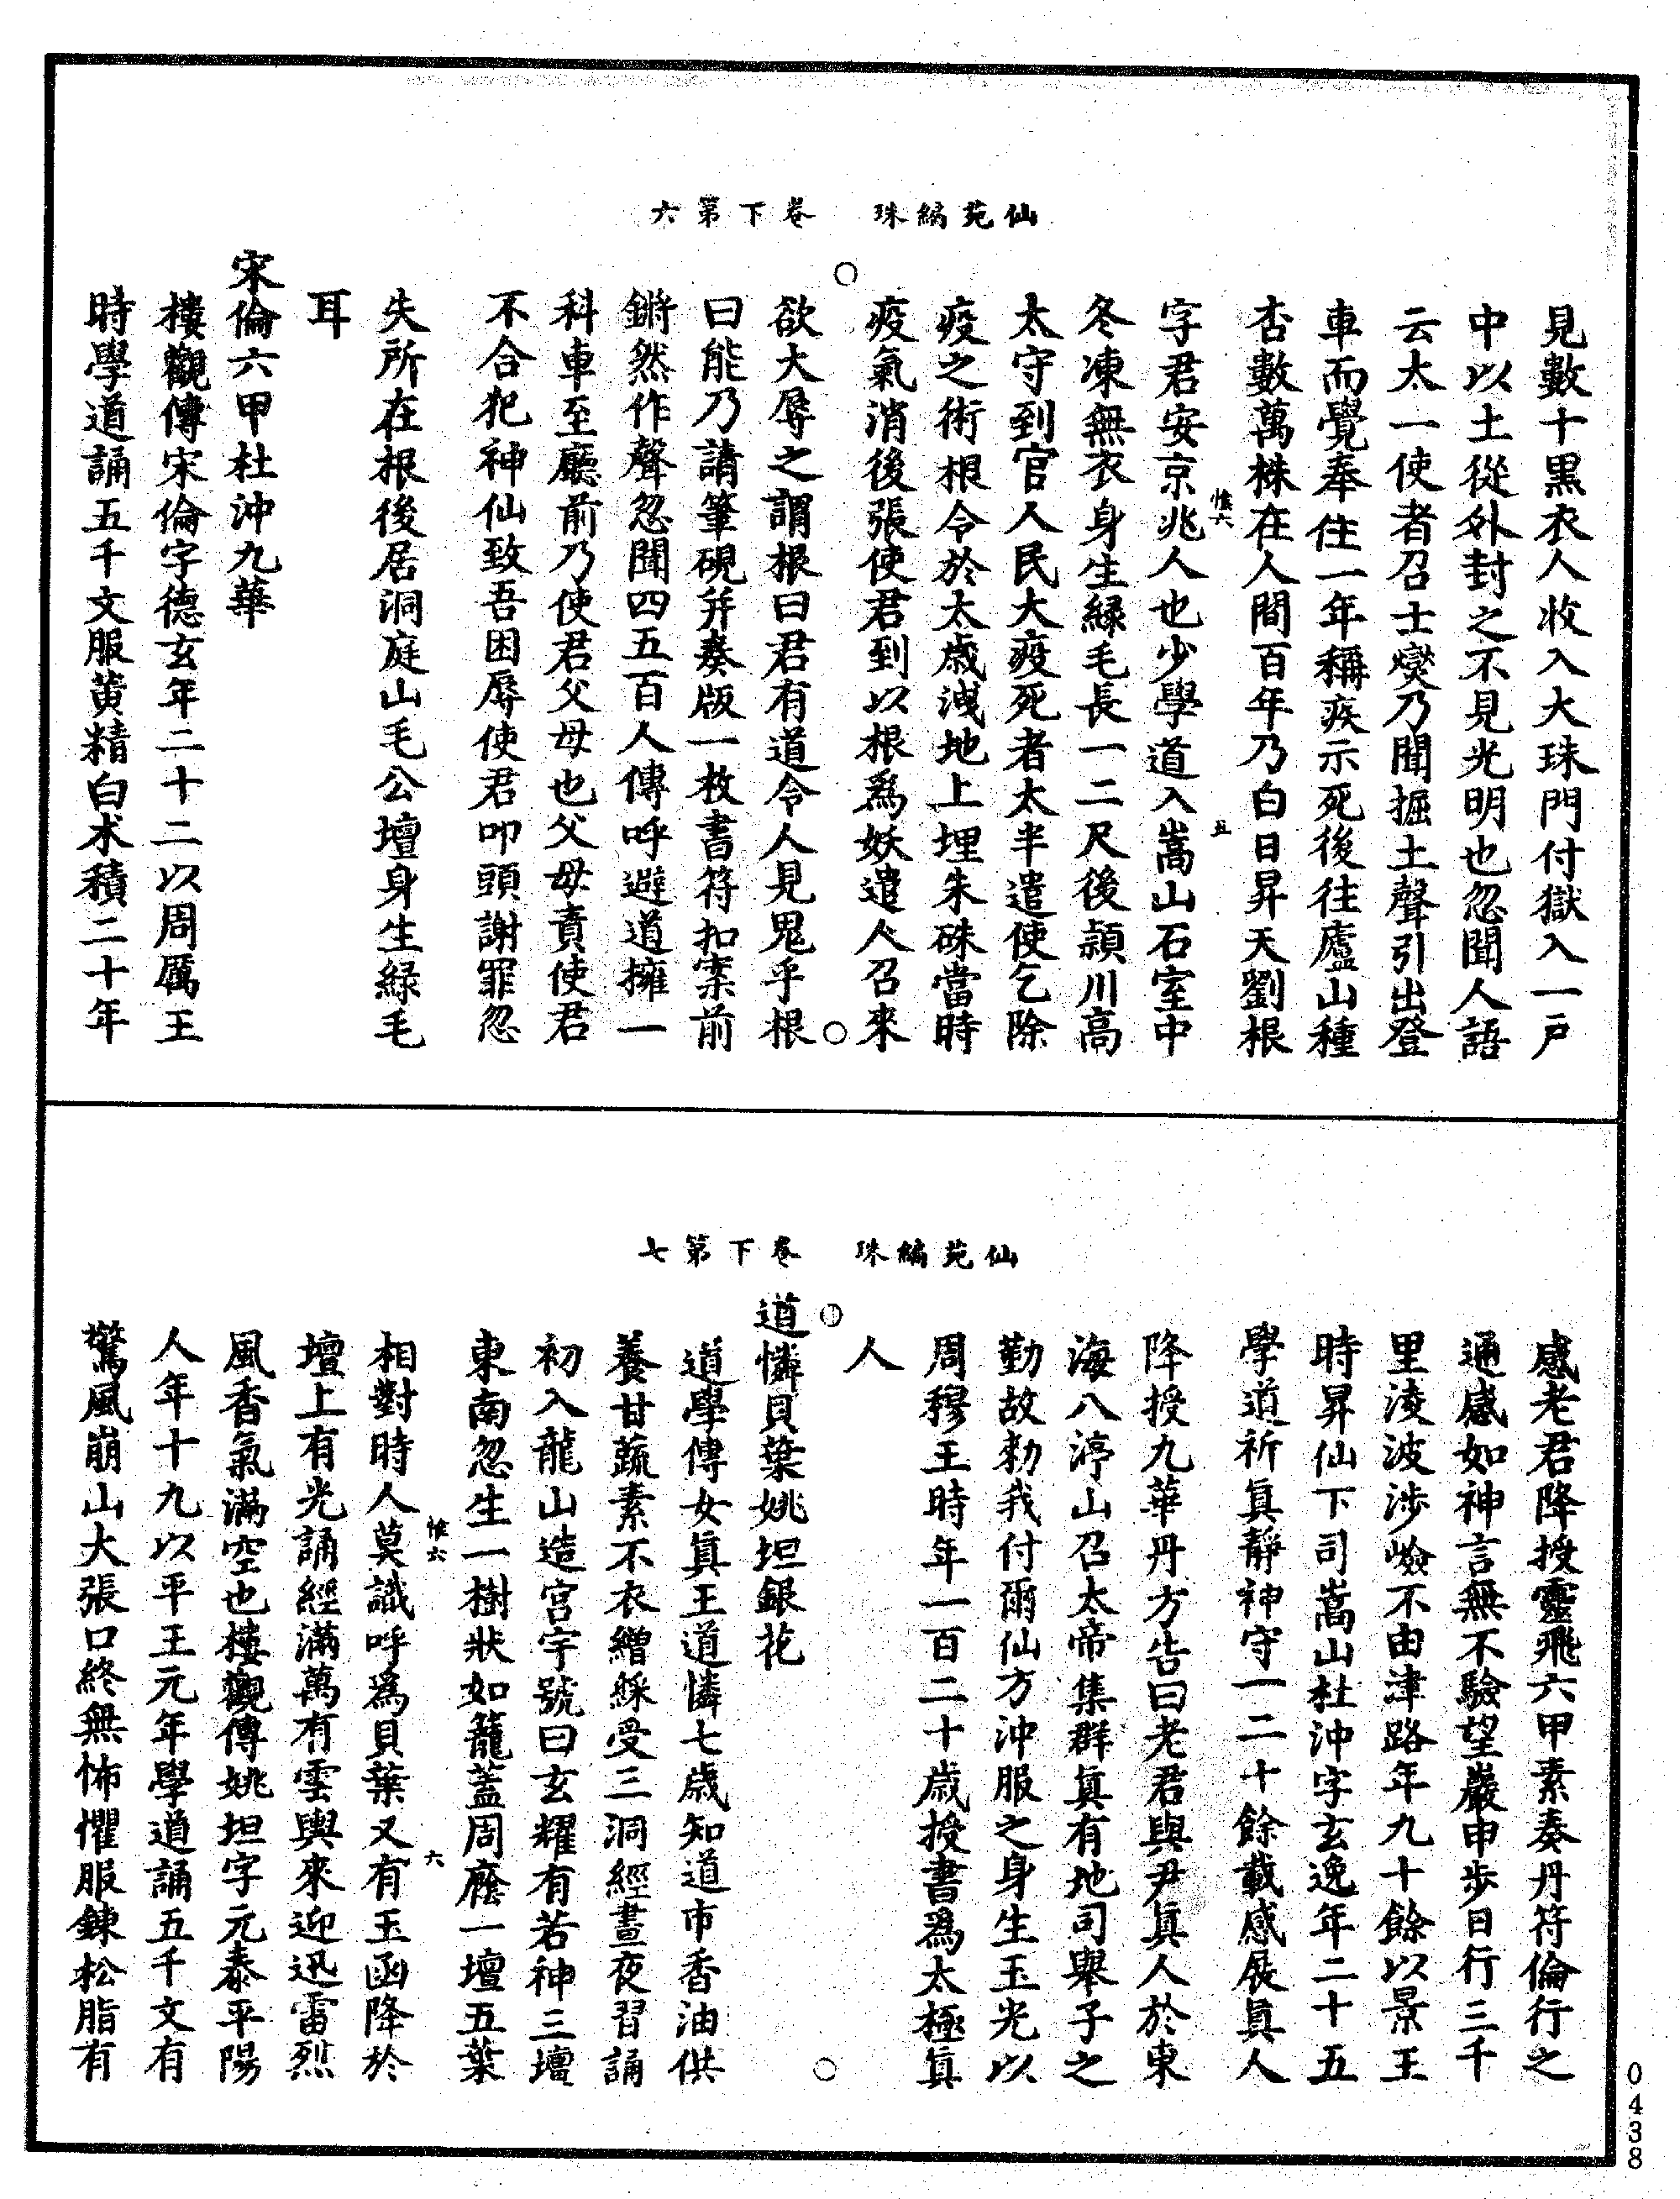 仙苑編珠　卷下第六
見數十黑衣人收入大珠門付獄入一戶
中以土從外封之不見光明也忽聞人語
云太一使者召士燮乃聞掘土聲引出登
車而覺奉住一年稱疾示死後往廬山種
杏數萬株在人間百年乃白日昇天劉根
惟六　五
字君安京兆人也少學道入嵩山石室中
冬凍無衣身生緑毛長一二尺後頴川高
太守到官人民大疫死者太半遣使乞除
疫之術根令於太歳洩地上埋朱硃當時
疫氣消後張使君到以根爲妖遣人召來
欲大辱之謂根曰君有道令人見鬼乎根
曰能乃請筆硯并奏版一枚書符扣案前
鏘然作聲忽聞四五百人傳呼避道擁一
科車至廳前乃使君父母也父母責使君
不合犯神仙致吾困辱使君叩頭謝罪忽
失所在根後居洞庭山毛公壇身生緑毛
耳
宋倫六甲杜沖九華
樓觀傳宋倫字德玄年二十二以周厲王
時學道誦五千文服黄精白术積二十年
仙苑編珠　卷下第七
感老君降授靈飛六甲素奏丹符倫行之
通感如神言無不驗望巖申步日行三千
里淩波涉嶮不由津路年九十餘以景王
時昇仙下司嵩山杜沖字玄逸年二十五
學道祈真靜神守一二十餘載感展真人
降授九華丹方告曰老君與尹真人於東
海八渟山召太帝集群真有地司舉子之
勤故勑我付爾仙方沖服之身生玉光以
周穆王時年一百二十歳授書爲太極真
人
道憐貝葉姚坦銀花
道學傳女真王道憐七歳知道市香油供
養甘蔬素不衣繒綵受三洞經晝夜習誦
初入龍山造宮宇號曰玄耀有若神三壇
東南忽生一樹狀如籠蓋周廕一壇五葉
相對時人莫識呼爲貝葉又有玉函降於
惟六　六
壇上有光誦經滿萬有雲輿來迎迅雷烈
風香氣滿空也樓觀傳姚坦字元泰平陽
人年十九以平王元年學道誦五千文有
驚風崩山大張口終無怖懼服鍊松脂有
0438